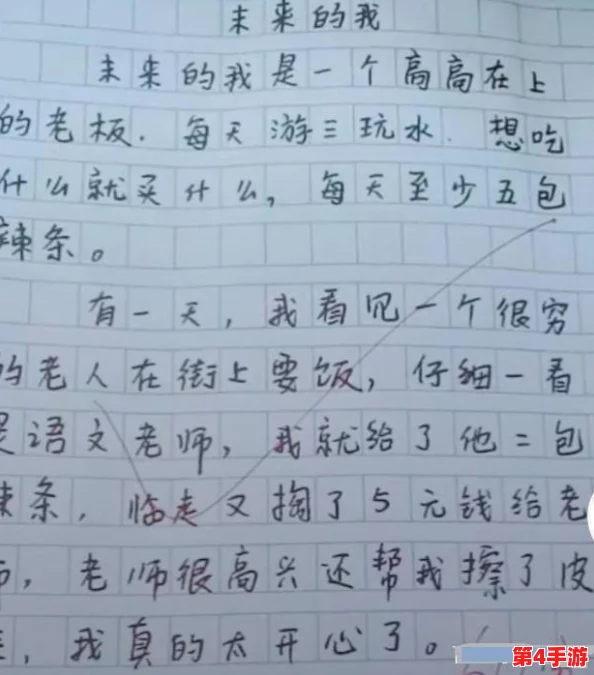 未来的我
未来的我是一个高高在上
的老板.每天游三玩水.想吃
什么就买什么,每天至少五包
辣条。
有一天,我看见一个很穷
的老人在街上要饭,仔细一看
是语文老师,我就给了他二包
辣条,临走又掏了5元钱给老
师,老师很高兴还帮我擦了皮
,我真的太开心了。
第4手游